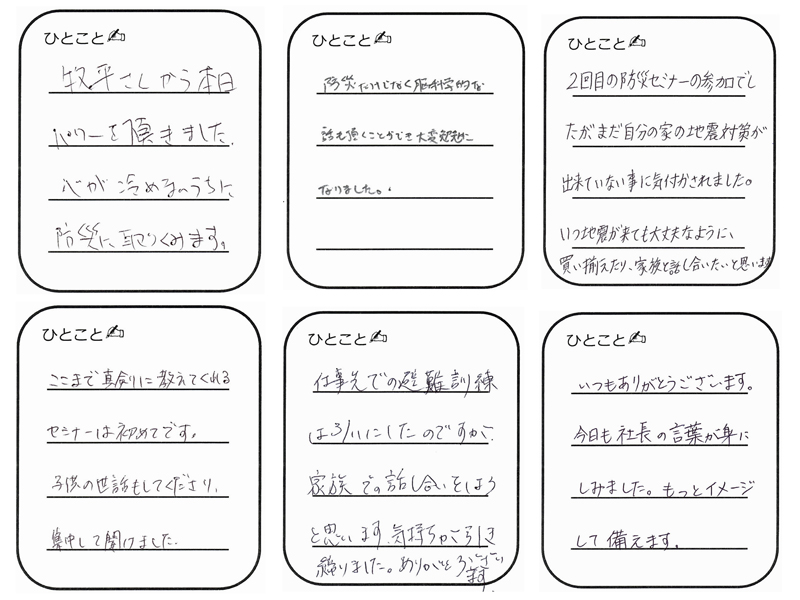 ひとこと✍
牧平さんから本日
パワーを頂きました。
心が冷めないうちに
防災に取りくみます。
ひとこと✍
防災だけでなく脳科学的な
話も頂くことができ大変勉強に
なりました。
ひとこと✍
2回目の防災セミナーの参加でし
たがまだ自分の家の地震対策が
出来ていない事に気付かされました。
いつ地震が来ても大丈夫なように、
買い揃えたり、家族と話し合いたいと思います
ひとこと✍
ここまで真剣に教えてくれる
セミナーは初めてです。
子供の世話もしてくださり、
集中して聞けました。
ひとこと✍
仕事先での避難訓練
は3/11にしたのですが、
家族での話し合いをしよう
と思います。気持ちが引き
締りました。ありがとうございます
ひとこと✍
いつもありがとうございます。
今日も社長の言葉が身に
しみました。もっとイメージ
して備えます。